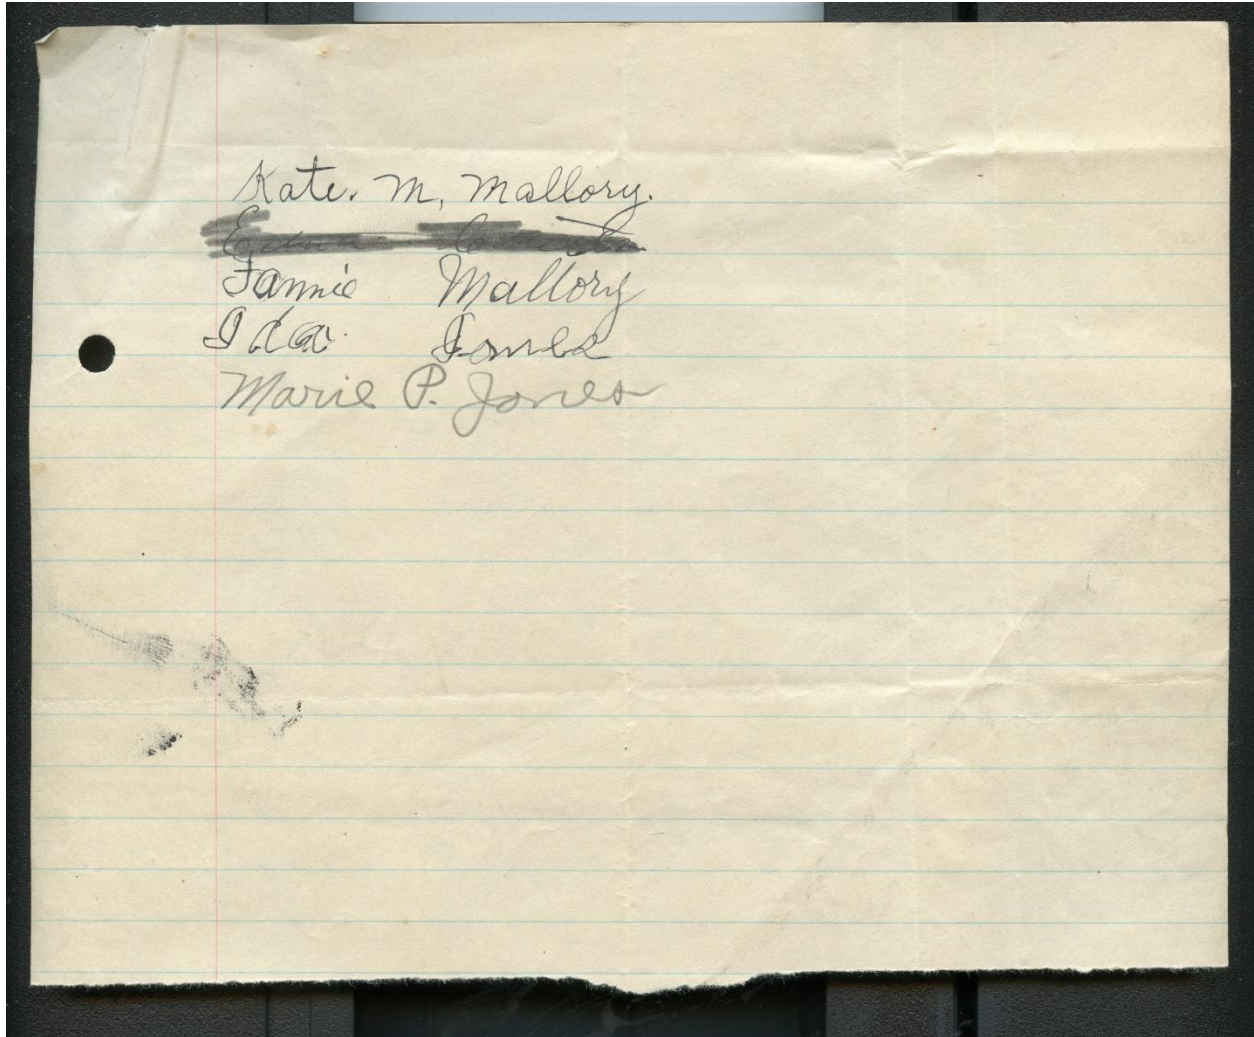 Kate. M, Mallory.
Edna
Fannie Mallory
Ida Jones
Marie P. Jones